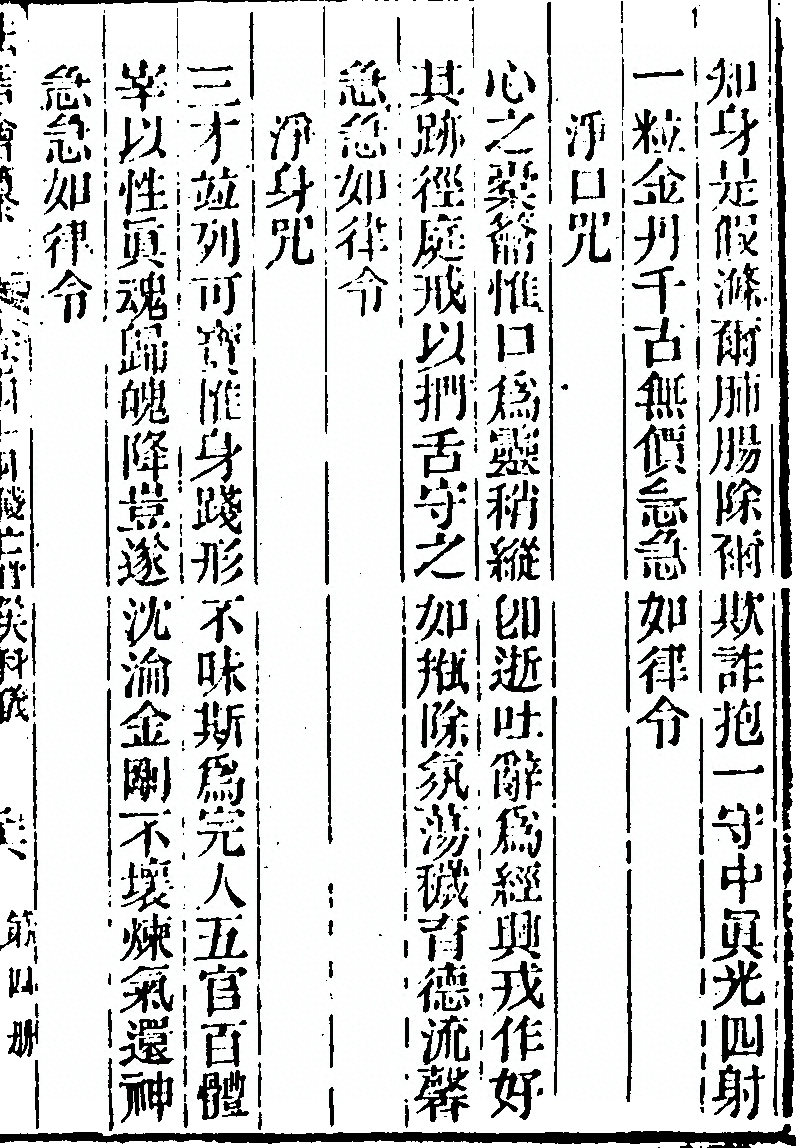 知身是假滌爾肺腸除爾欺詐抱一守中眞光四射
一粒金丹千古無價急急如律令
淨口咒
心之橐籥惟口爲靈稍縱卽逝吐辭爲經興戎作好
其跡徑庭戒以捫舌守之如甁除氛蕩穢育德流馨
急急如律令
淨身咒
三才竝列可寶惟身踐形不昧斯爲完人五官百體
宰以性眞魂歸魄降豈遂沈淪金剛不壞煉氣還神
急急如律令
科儀
第四册